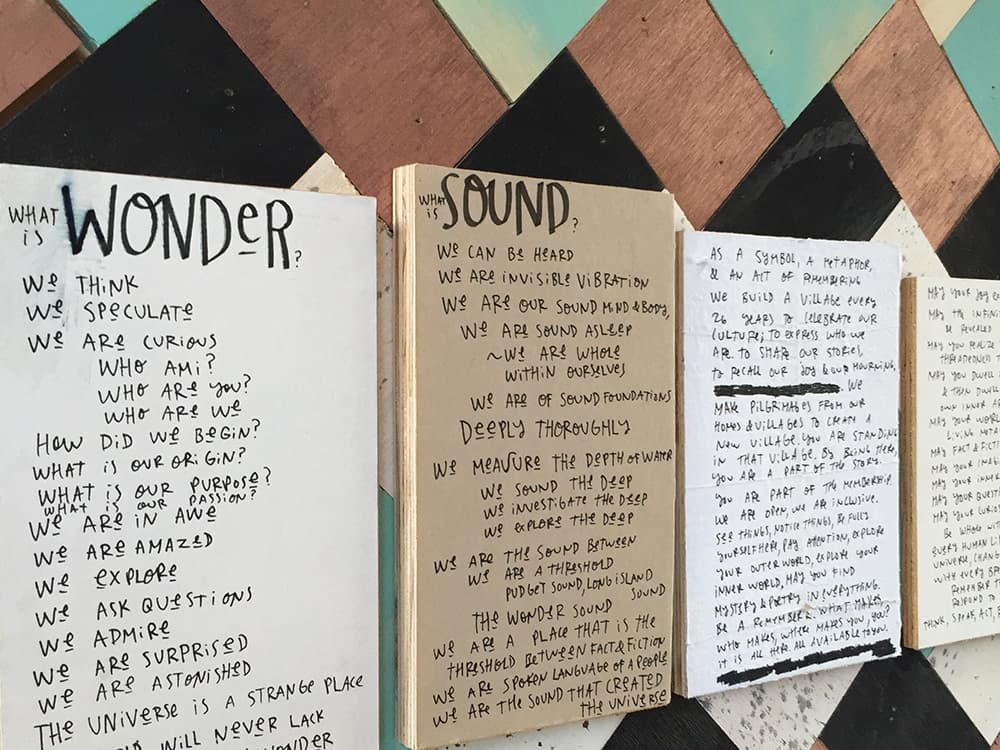 WHAT IS WONDER?
WE THINK
WE SPECULATE
WE ARE CURIOUS
WHO AM I?
WHO ARE YOU?
WHO ARE WE
HOW DID WE BEGIN?
WHAT IS OUR ORIGIN?
WHAT IS OUR PURPOSE?
WHAT IS OUR PASSION?
WE ARE IN AWE
WE ARE AMAZED
WE EXPLORE
WE ASK QUESTIONS
WE ADMIRE
WE ARE SURPRISED
WE ARE ASTONISHED
THE UNIVERSE IS A STRANGE PLACE
WILL NEVER LACK
WONDER
WHAT IS SOUND?
WE CAN BE HEARD
WE ARE INVISIBLE VIBRATION
WE ARE OUR SOUND MIND & BODY,
WE ARE SOUND ASLEEP
~WE ARE WHOLE
WITHIN OURSELVES
WE ARE OF SOUND FOUNDATIONS
DEEPLY THOROUGHLY
WE MEASURE THE DEPTH OF WATER
WE SOUND THE DEEP
WE INVESTIGATE THE DEEP
WE EXPLORE THE DEEP
WE ARE THE SOUND BETWEEN
WE ARE A THRESHOLD
PUDGET SOUND, LONG ISLAND
SOUND
THE WONDER SOUND
WE ARE A PLACE THAT IS THE
THRESHOLD BETWEEN FACT & FICTION
WE ARE SPOKEN LANGUAGE OF A PEOPLE
WE ARE THE SOUND THAT CREATED
THE UNIVERSE
AS A SYMBOL, A METAPHOR,
& AN ACT OF REMEMBERING
WE BUILD A VILLAGE EVERY
26 YEARS TO CELEBRATE OUR
CULTURE; TO EXPRESS WHO WE
ARE TO SHARE OUR STORIES,
TO RECALL OUR JOY & OUR MOURNING,
. WE
MAKE PILGRIMAGES FROM OUR
HOMES & VILLAGES TO CREATE A
NEW VILLAGE. YOU ARE STANDING
IN THAT VILLAGE. BY BEING HERE,
YOU ARE A PART OF THE STORY.
YOU ARE PART OF THE MEMBERSHIP.
WE ARE OPEN, WE ARE INCLUSIVE.
SEE THINGS, NOTICE THINGS, BE FULLY
YOURSELF HERE, PAY ATTENTION, EXPLORE
YOUR OUTER WORLD, EXPLORE YOUR
INNER WORLD, MAY YOU FIND
MYSTERY & POETRY IN EVERYTHING.
BE A REMEMBERER. WHAT MAKES,
WHO MAKES, WHERE MAKES YOU, YOU?
IT IS ALL HERE. ALL AVAILABLE TO YOU.
MAY YOUR JOY
MAY THE INFINI
BE REVEALED
MAY YOU REALIZE
THREADEDNESS
MAY YOU DWELL
& THEN DWELL
OWN INNER
MAY YOUR WORL
LIVING META
MAY FACT & FICTI
MAY YOUR IMAG
MAY YOUR INNER
MAY YOUR QUEST
MAY YOUR CURIO
BE WHOLE WIT
EVERY HUMAN LI
UNIVERSE, CHANG
WITH EVERY BR
REMEMBER
RESPOND TO
THINK, SPEAK, ACT,